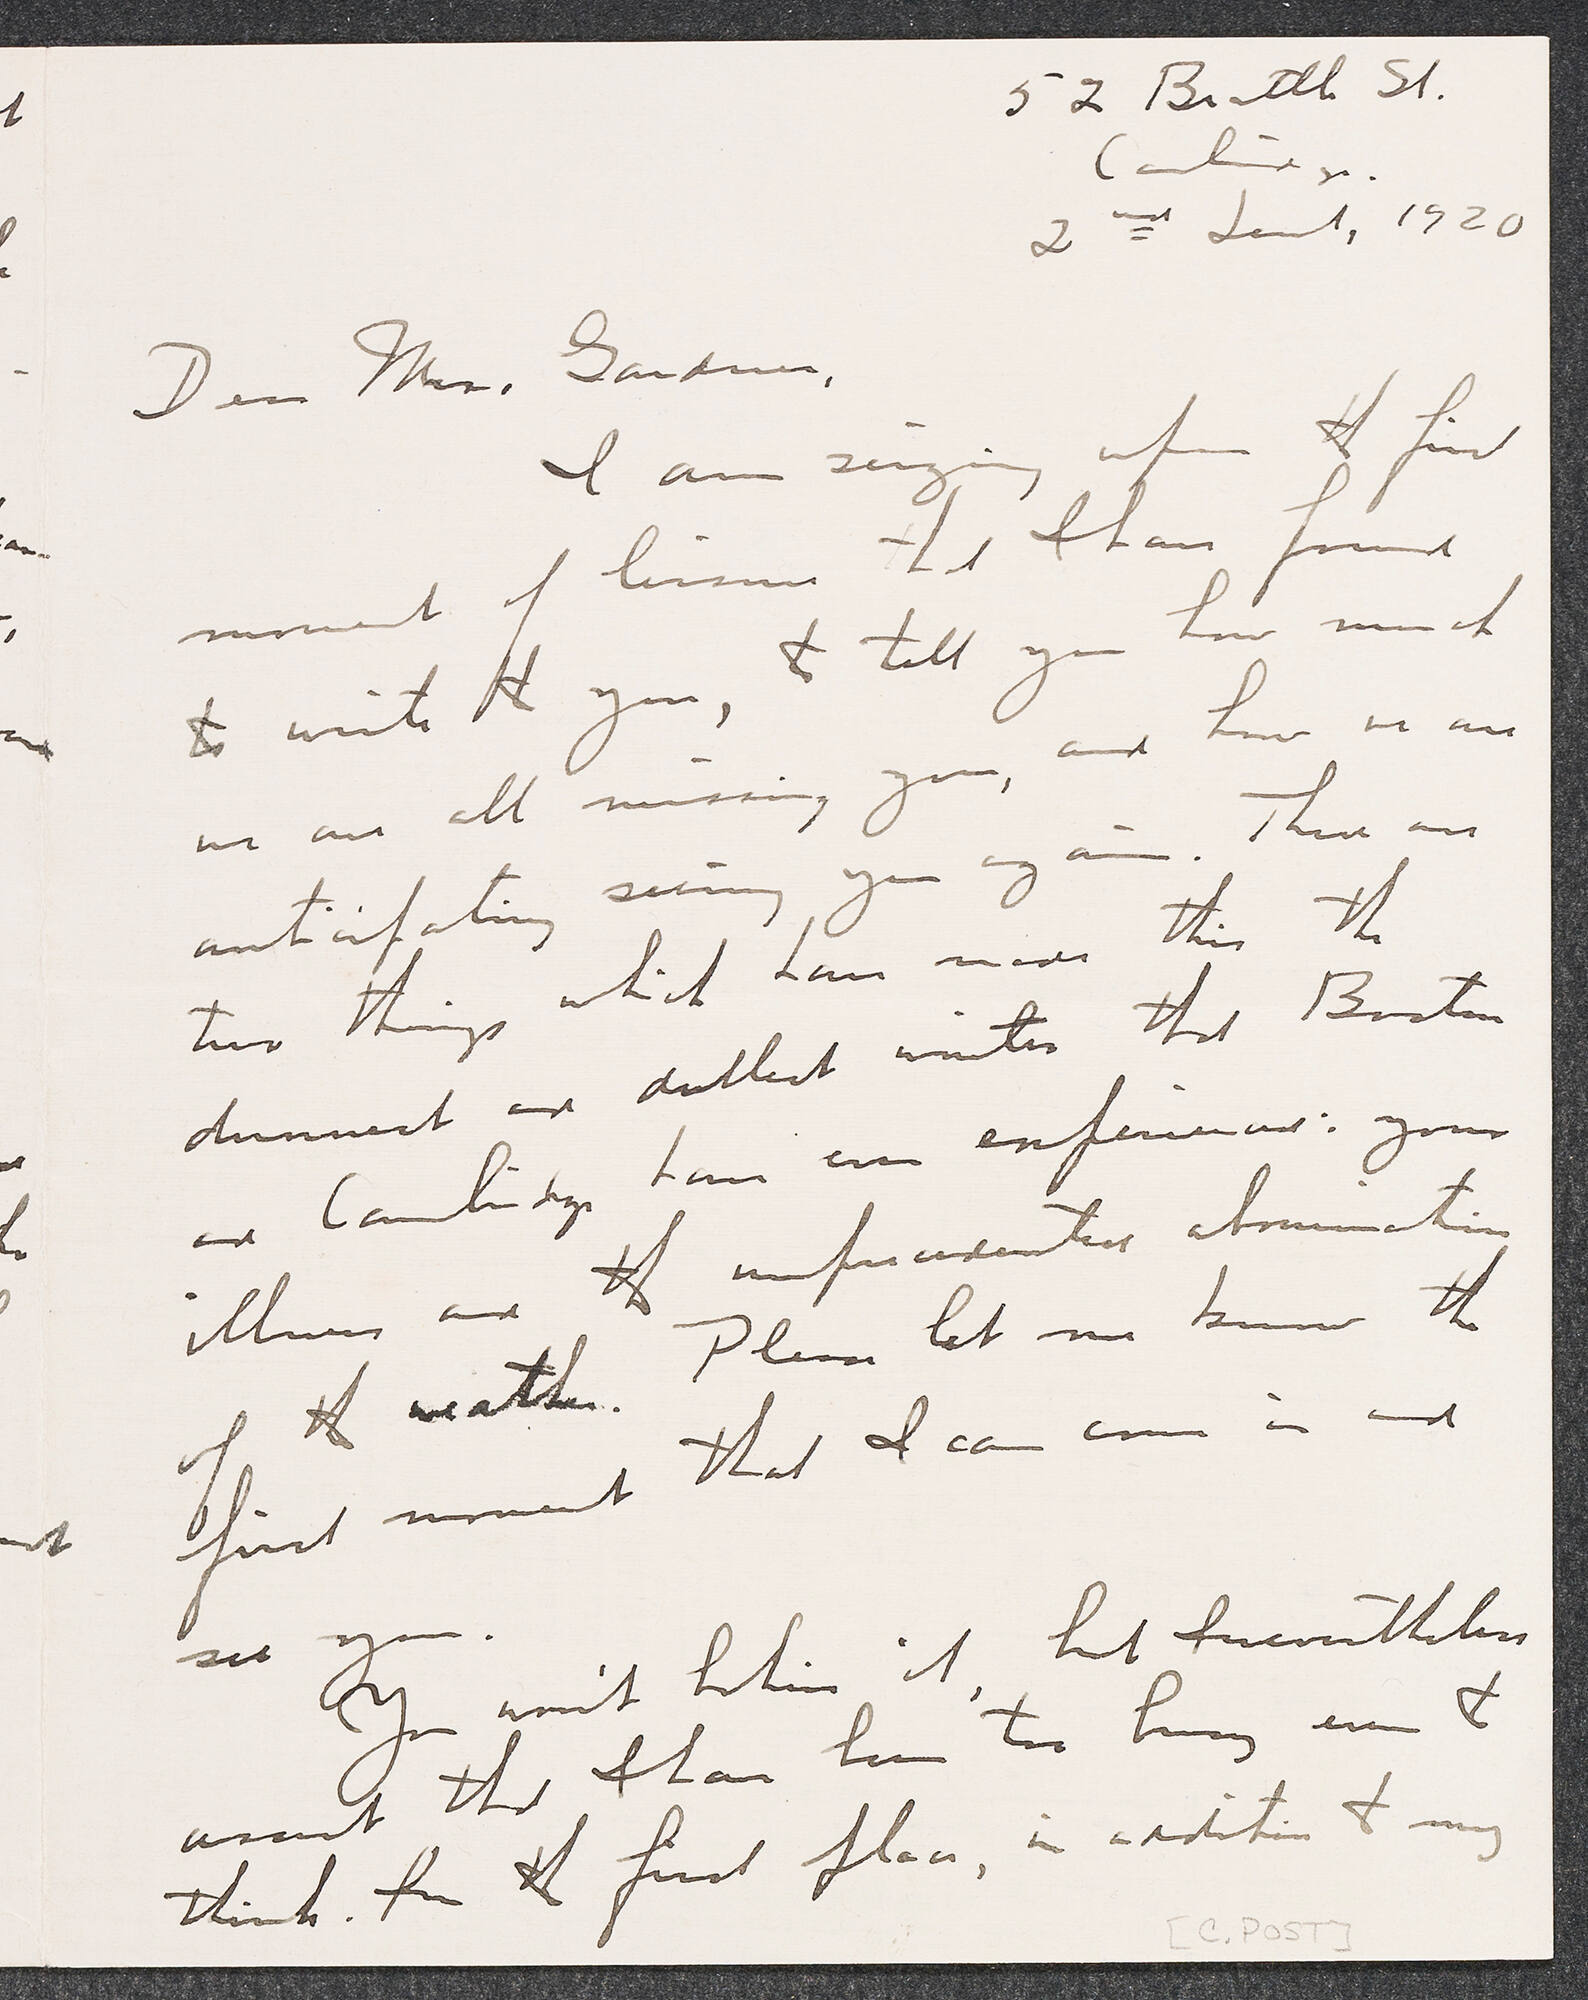 52 Brattle St.
Cambridge.
2nd Lent, 1920
Dear Mrs. Gardner,
I am seizing upon the first
moment of leisure that I have found
to write to you, to tell you how much
we are all missing you, and how we are
anticipating seeing you again. There are
two things which have made this the
dunnest and dullest winter that Boston
and Cambridge have ever experienced: your
illness and the unprecedented abomination
of the weather. Please let me know the
first moment that I can come in and
see you.
You won't believe it, but I nevertheless
assert that I have been too busy even to
think. In the first place, in addition to my
[C. POST]